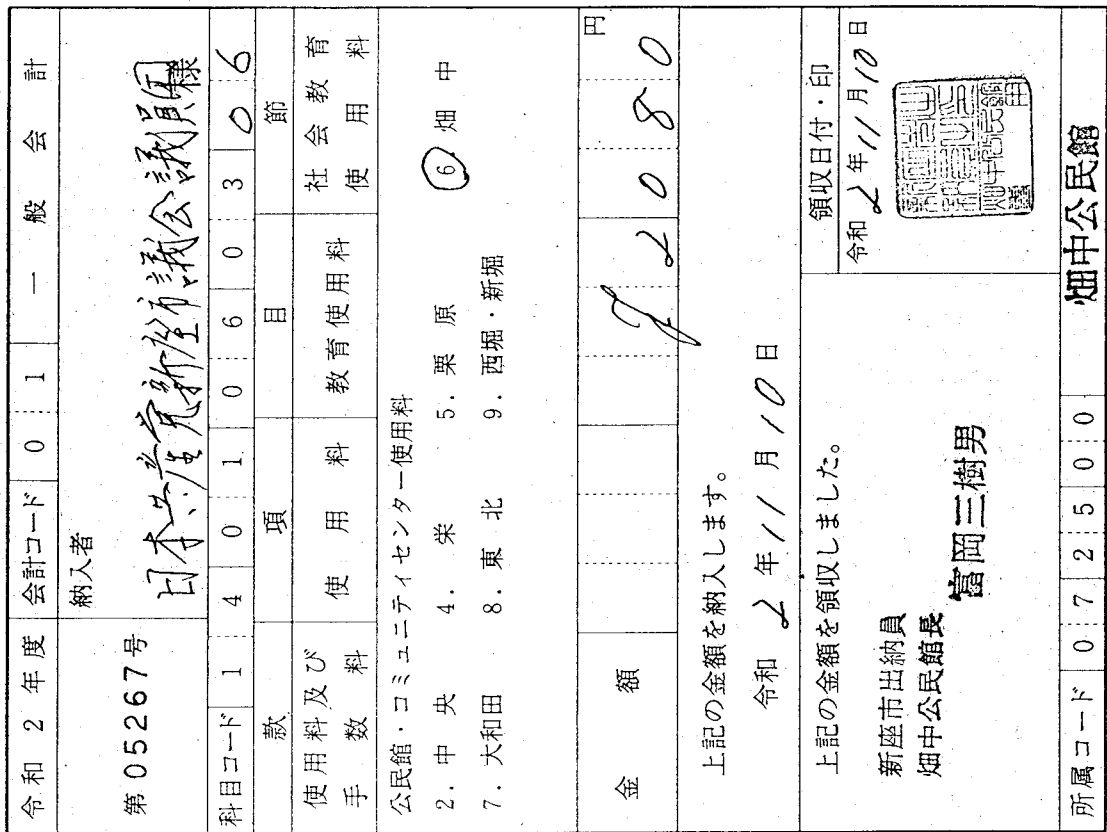 令和2年度 会計コード 01 一般会計
第05267号 納入者
日本共産党新座市議会議員団様
科目コード 14010603 06
款 項 目 節
使用料及び手数料 使用料 教育使用料 社会教育使用料
公民館・コミュニティセンター使用料
2. 中央 4. 栄 5. 栗原 6. 畑中
7. 大和田 8. 東北 9. 西堀・新堀
金額 ¥2080円
上記の金額を納入します。
令和2年11月10日
上記の金額を領収しました。
新座市出納員
畑中公民館長 富岡三樹男
領収日付・印
令和2年11月10日
所属コード 072500 畑中公民館